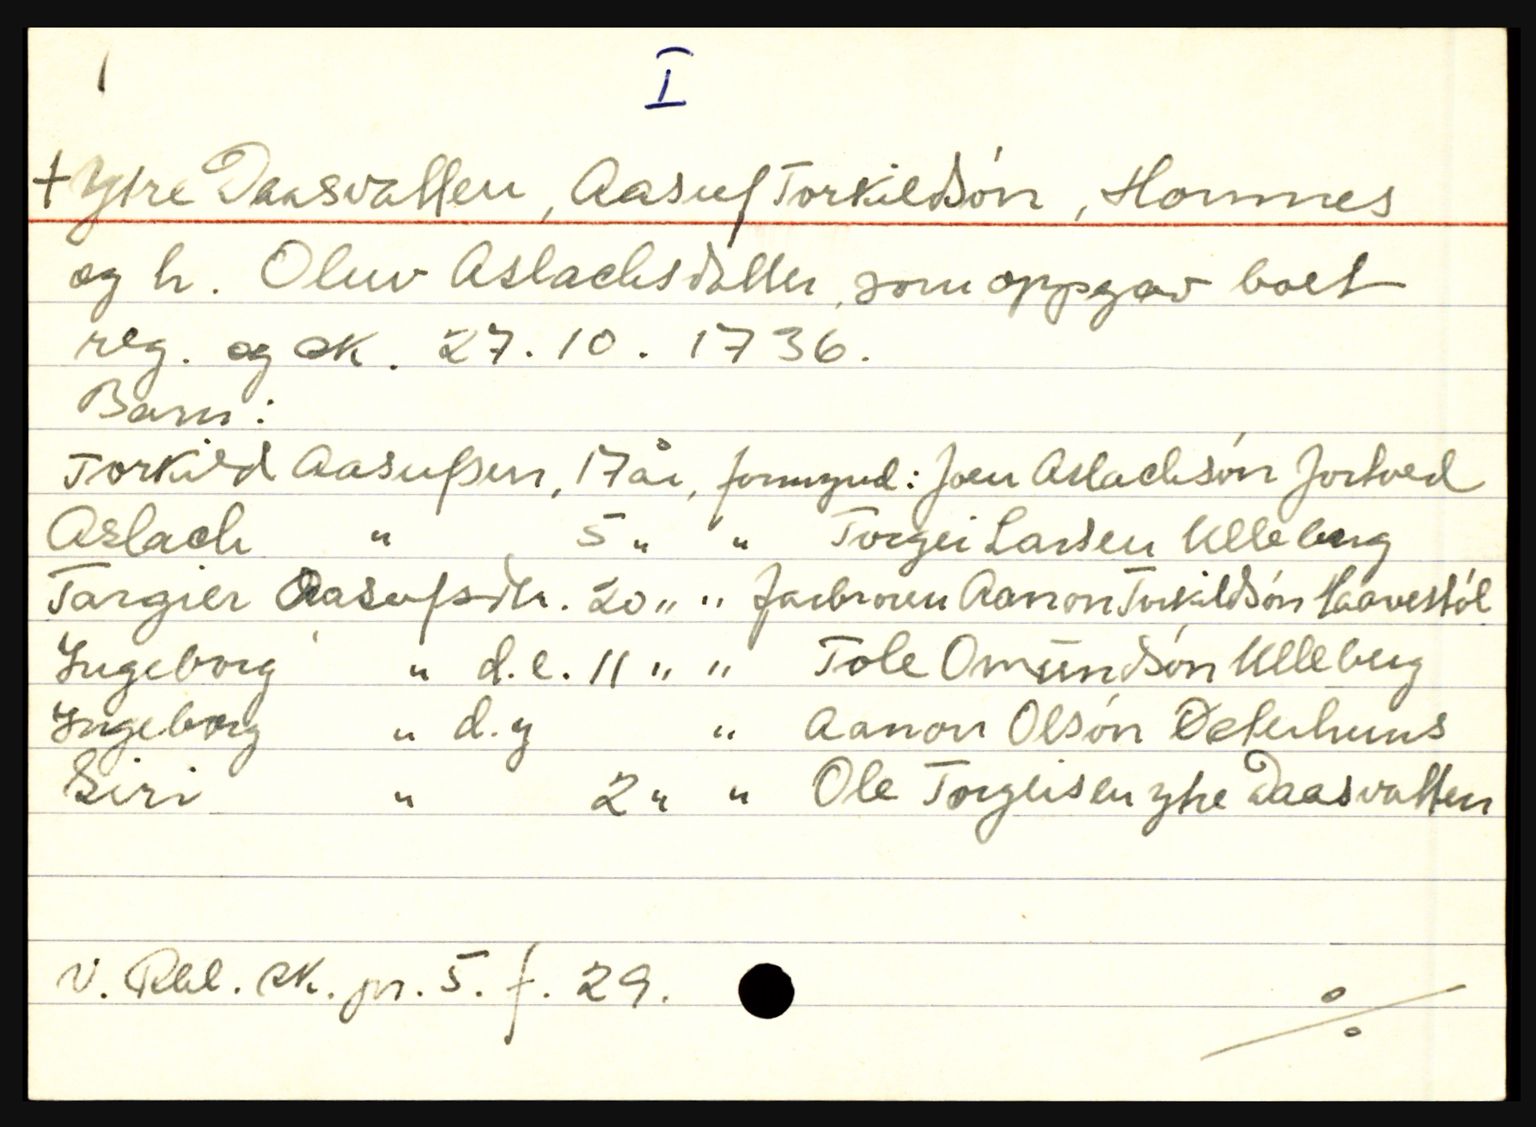 I
+ Ytre Daasvatten, Aasuf Torkildsón, Hommes
og h. Oluv Aslachsdatter, som oppgav boet
reg. og sk. 27.10.1736.
Barn:
Torkild Aasufsen, 17 år, formynd: Joen Aslachsón Jortved
Aslach " 5 " " Torgei Larsen Ulleberg
Targier Aasufsdtr. 20 " " farbroren Aanon Torkildsón Haavestól
Ingeborg " d.e. 11 " " Tole Omŭndsón Ulleberg
Ingeborg " d.y " Aanon Olsón
Siri " 2 " " Ole Torgeisen ytre Daasvatten
V. Rbl. sk. pr. 5. f. 29.
%